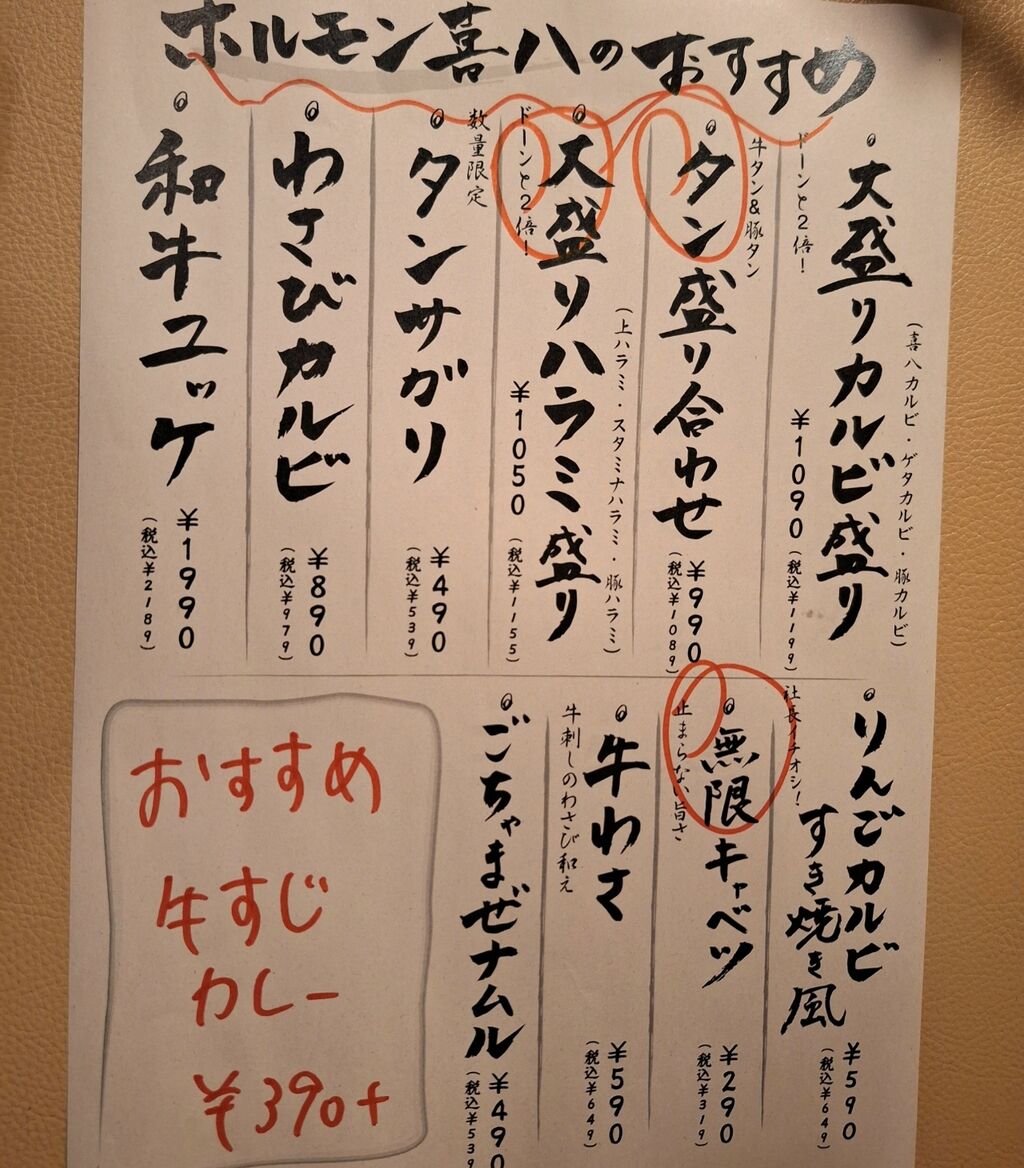 ホルモン喜八のおすすめ
大盛りカルビ盛り
(喜八カルビ・ゲタカルビ・豚カルビ)
ドーンと2倍!
¥1090
(税込¥1199)
タン盛り合わせ
牛タン&豚タン
¥990
(税込¥1089)
大盛りハラミ盛り
(上ハラミ・スタミナハラミ・豚ハラミ)
ドーンと2倍!
¥1050
(税込¥1155)
タンサガリ
数量限定
¥490
(税込¥539)
わさびカルビ
¥890
(税込¥979)
和牛ユッケ
¥1990
(税込¥2189)
りんごカルビ
すき焼き風
社長イチオシ!
¥590
(税込¥649)
無限キャベツ
止まらない旨さ
¥290
(税込¥319)
牛わさ
牛刺しのわさび和え
¥590
(税込¥649)
ごちゃまぜナムル
¥490
(税込¥539
おすすめ
牛すじ
カレー
¥390+